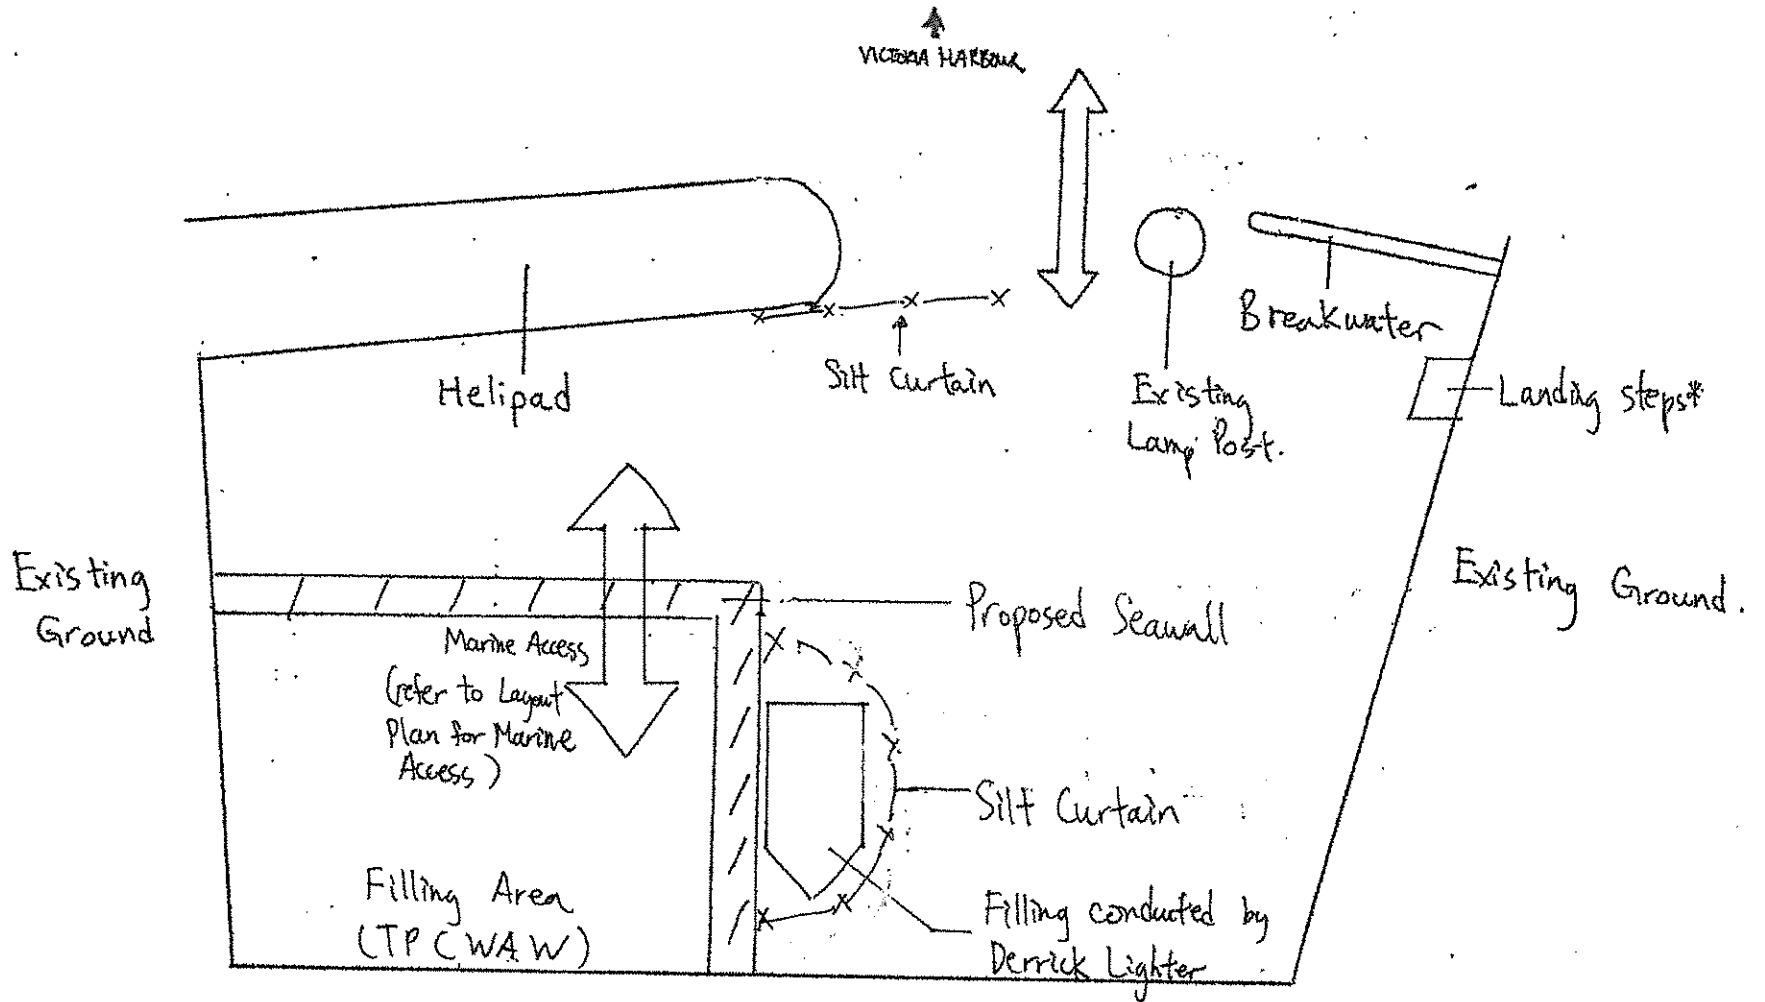 VICTORIA HARBOUR
Breakwater
Helipad
Silt Curtain
Existing
Lamp Post.
Landing steps*
Existing
Ground
Existing Ground.
Proposed Seawall
Marine Access
(refer to Layout
Plan for Marine
Access)
Silt Curtain
Filling Area
(TPCWAW)
Filling conducted by
Derrick Lighter